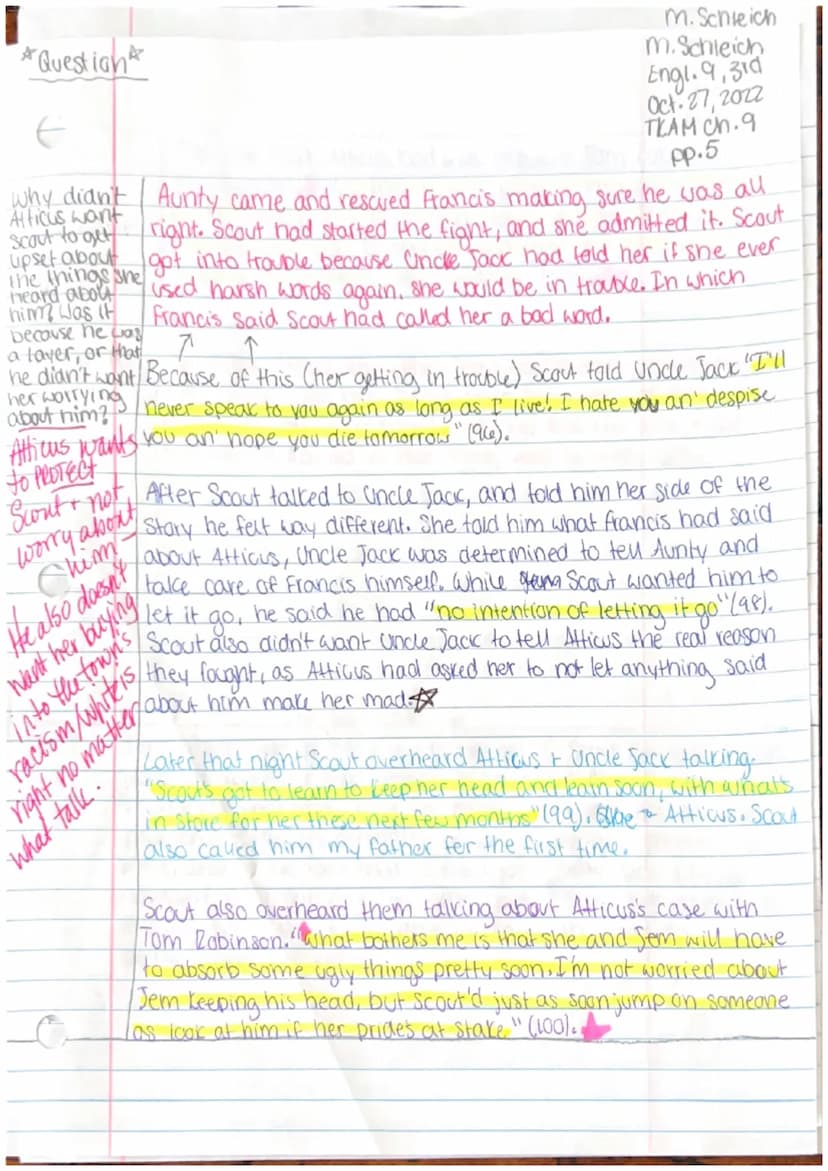 M. Schleich
M. Schleich
Engl. 9, 3rd
Oct. 27, 2022
TKAM Ch. 9
pp. 5
*Question*
why didn't
Atticus want
scout to get
upset about
the things she
heard about
him? Was it
because he was
a layer, or that
he didn't want
her worrying
about him?
Atticus wants
to PROTECT
Scout + not
worry about
him –
He also doesn't
want her buying
into the town's
racism/white is
right no matter
what talk.
Aunty came and rescued Francis making sure he was all
right. Scout had started the fight, and she admitted it. Scout
got into trouble because Uncle Jack had told her if she ever
used harsh words again, she would be in trouble. In which
Francis said Scout had called her a bad word.
Because of this (her getting in trouble) Scout told Uncle Jack "I'll
never speak to you again as long as I live! I hate you an' despise
you an' hope you die tomorrow" (96).
After Scout talked to Uncle Jack, and told him her side of the
story he felt way different. She told him what Francis had said
about Atticus, Uncle Jack was determined to tell Aunty and
take care of Francis himself. While Scout wanted him to
let it go, he said he had "no intention of letting it go" (98).
Scout also didn't want Uncle Jack to tell Atticus the real reason
they fought, as Atticus had asked her to not let anything said
about him make her mad.☆
Later that night Scout overheard Atticus + Uncle Jack talking.
"Scout's got to learn to keep her head and learn soon, with what's
in store for her these next few months" (99). ~ Atticus. Scout
also called him my father for the first time.
Scout also overheard them talking about Atticus's case with
Tom Robinson. "What bothers me is that she and Jem will have
to absorb some ugly things pretty soon. I'm not worried about
Jem keeping his head, but scout'd just as soon jump on someone
as look at him if her prides at stake" (100).